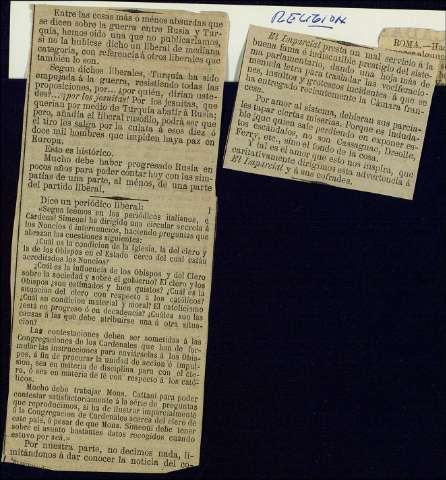 Entre las cosas más ó ménos absurdas que
se dicen sobre la guerra entre Rusia y Tur-
quía, hemos oido una que no publicaríamos,
si no la hubiese dicho un liberal de mediana
categoría, con referencia á otros liberales que
tambien lo son.
Segun dichos liberales, Turquía ha sido
empeñada á la guerra, resistiendo todas las
proposiciones, por... ¿por quién, dirian uste-
des?... ¡por los jesuitas! Por los jesuitas, que
querian por medio de Turquía abatir á Rusia;
pero, añadia el liberal rusófilo, podrá ser que
el tiro les salga por la culata á esos diez ó
doce mil hombres que impiden haya paz en
Europa.
Esto es histórico.
Mucho debe haber progresado Rusia en
pocos años para poder contar hoy con las sim-
patías de una parte, al ménos, de una parte
del partido liberal.
Dice un periódico liberal:
«Segun leemos en los periódicos italianos, el
Cardenal Simeoni ha dirigido una circular secreta á
los Nuncios é internuncios, haciendo preguntas que
abrazan las cuestiones siguientes:
¿Cuál es la condicion de la Iglesia, la del clero y
la de los Obispos en el Estado cerca del cual están
acreditados los Nuncios?
¿Cuál es la influencia de los Obispos y del Clero
sobre la sociedad y sobre el gobierno? El clero y los
Obispos ¿son estimados y bien quistos? ¿Cuál es la
situacion del clero con respecto á los católicos?
¿Cuál su condicion material y moral? El catolicismo
¿está en progreso ó en decadencia? ¿Cuáles son las
causas á las que debe atribuirse una ú otra situa-
cion?
Las contestaciones deben ser sometidas á las
Congregaciones de los Cardenales que han de for-
mular las instrucciones para enviárselas á los Obis-
pos, á fin de procurar la unidad de accion é impul-
sion, sea en materia de disciplina para con el cle-
ro, ó sea en materia de fé con respecto á los cató-
licos.
Mucho debe trabajar Mons. Cattani para poder
contestar satisfactoriamente á la série de preguntas
que reproducimos, si ha de ilustrar imparcialmente
á la Congregacion de Cardenales acerca del clero de
este país, á pesar de que Mons. Simeoni debe tener
sobre el asunto bastantes datos recogidos cuando
estuvo por acá.»
Por nuestra parte, no decimos nada, li-
mitándonos á dar conocer la noticia del co-
RELIGION
ROMA.
El Imparcial presta un mal servicio á la
buena fama é indiscutible prestigio del siste-
ma parlamentario, dando una hoja más de
menuda letra para trasladar las vociferacio-
nes, insultos y grotescos incidentes á que se
ha entregado recientemente la Cámara fran-
cesa.
Por amor al sistema, debieran sus parcia-
les tapar ciertas miserias. Porque es induda-
ble que quien sale perdiendo en exponer es-
tos escándalos, no son Cassagnac, Desolle,
Ferry, etc., sino el fondo de la cosa.
Y tal es el amor que esto nos inspira, que
caritativamente dirigimos esta advertencia á
El Imparcial y á sus cofrades.